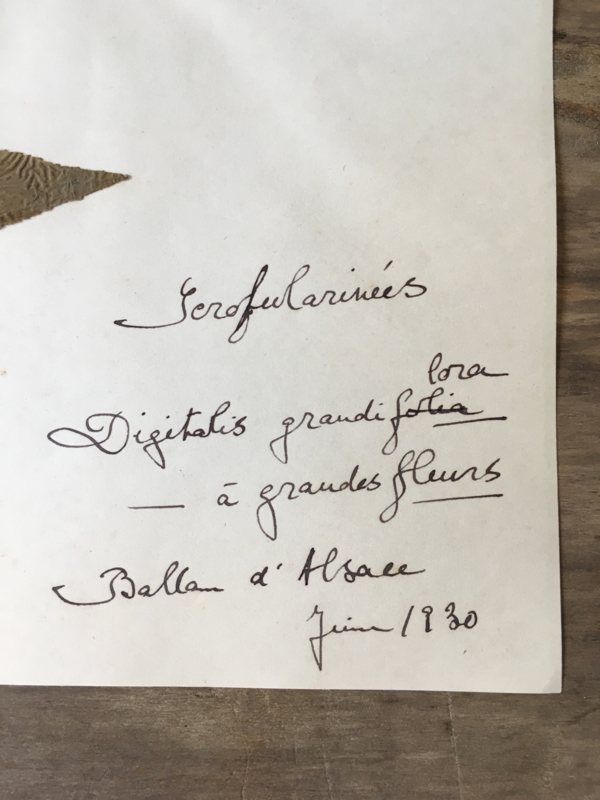 Scrofularinées
lora
Digitalis grandifolia
— à grandes fleurs
Ballon d'Alsace
Juin 1930